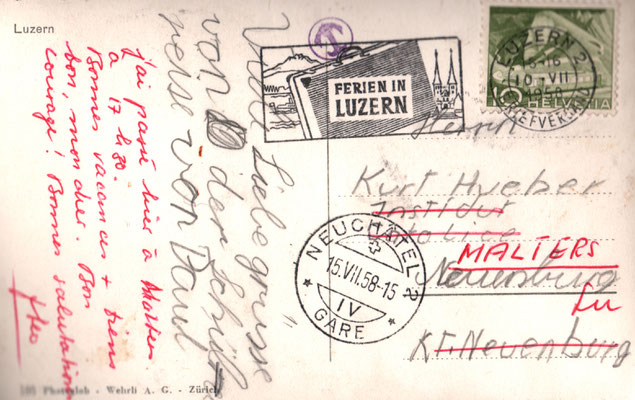 Luzern
FERIEN IN
LUZERN
LUZERN 2
10.VII
1958
BRIEFVERSAND
10 HELVETIA
Viele Liebe grüsse
von der
von Paul
j'ai passé hier à Malters.
à 17 h 30.
Bonnes vacances + tiens
bon, mon cher. Bon
courage! Bonnes salutations
Herrn
Kurt Hueber
Institut
Catolice
MALTERS
Neuenburg
Lu
KT. Neuenburg
NEUCHÂTEL 2
15.VII.58-15
IV
GARE
Photoglob - Wehrli A. G. - Zürich